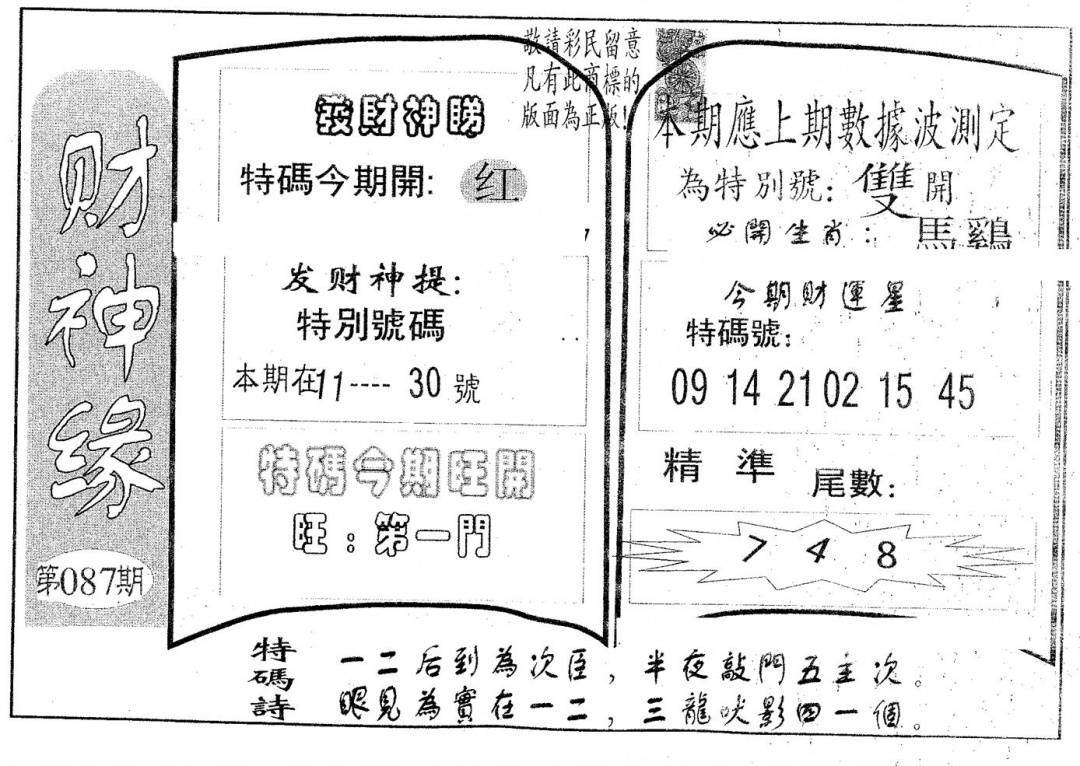 财神缘
第087期
敬請彩民留意
凡有此商標的
版面為正版!
發財神睇
特碼今期開:红
发财神提:
特別號碼
本期在11----30號
特碼今期旺開
旺:第一門
本期應上期數據波測定
為特別號:雙開
必開生肖:馬鷄
今期財運星
特碼號:
09 14 21 02 15 45
精準尾數:
7 4 8
特碼詩
一二后到為次臣,半夜敲門五主次。
眼見為實在一二,三龍吠影四一個。